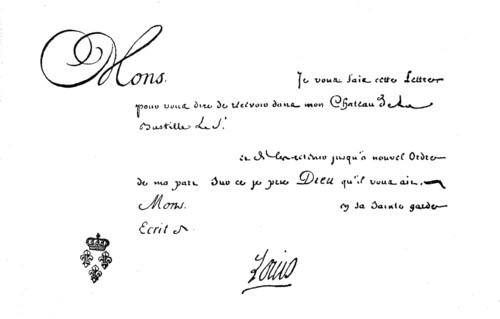 Mons. Je vous fais cette Lettre
pour vous dire de recevoir dans mon Chateau de La
Bastille Le S.r
et de l'y retenir jusqu'à nouvel Ordre
de ma part Sur ce je prie Dieu qu'il vous ait
Mons. en sa Sainte garde
Ecrit à
Louis